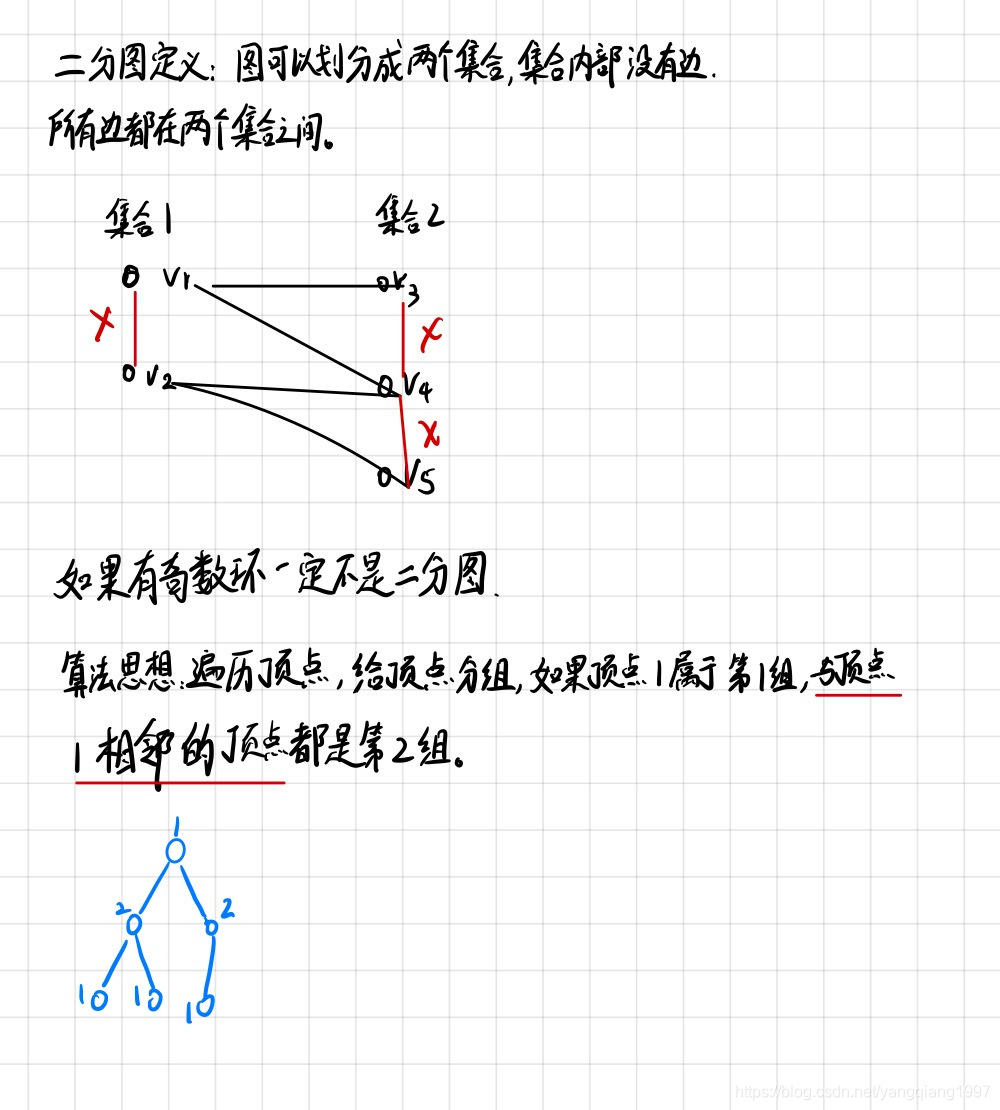 二分图定义：图可以划分成两个集合，集合内部没有边.
所有边都在两个集合之间。
集合1 集合2
V1 V3
V2 V4
V5
如果有奇数环一定不是二分图.
算法思想：遍历顶点，给顶点分组，如果顶点1属于第1组，与顶点
1相邻的顶点都是第2组。
1
2 2
1 1 1
https://blog.csdn.net/yangqiang1997